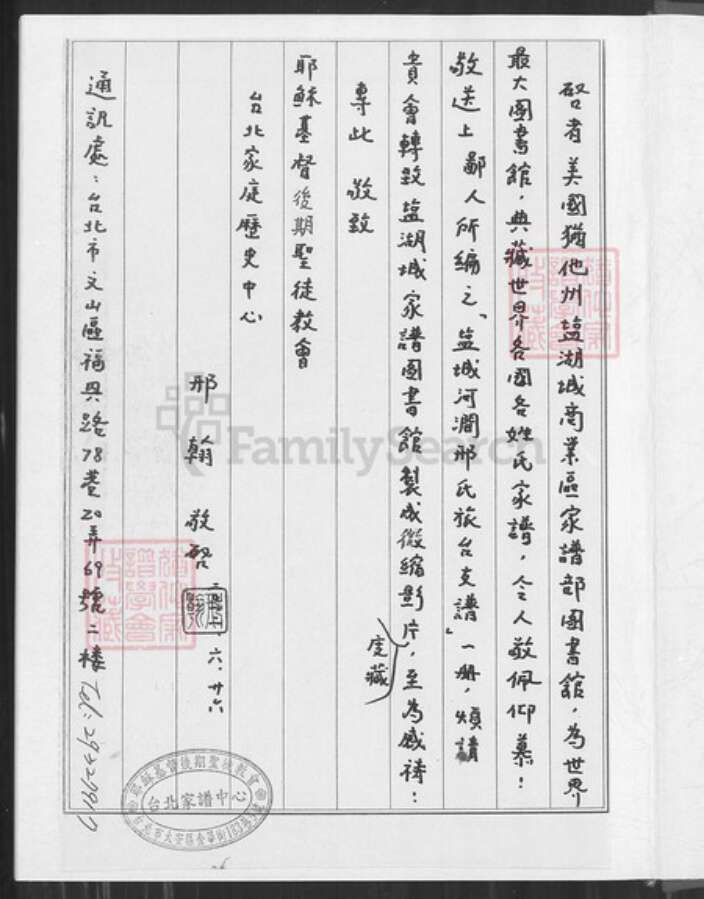 啓者美國猶他州盐湖城商業區家譜部圖書館，為世界
最大圖書館，典藏世界各國各姓氏家譜，令人敬佩仰慕！
敬送上鄙人所編之「盐城河澗邢氏旅台支譜」一册，煩請
貴會轉致盐湖城家譜圖書館製成微縮影片，至為感禱：
庋藏
專此 敬致
耶穌基督後期聖徒教會
台北家庭歷史中心
邢翰敬啓
六．廿六
通訊處：台北市文山區福興路78巷20弄69號二樓 Tel:
FamilySearch
耶穌基督後期聖徒教會
台北家譜中心